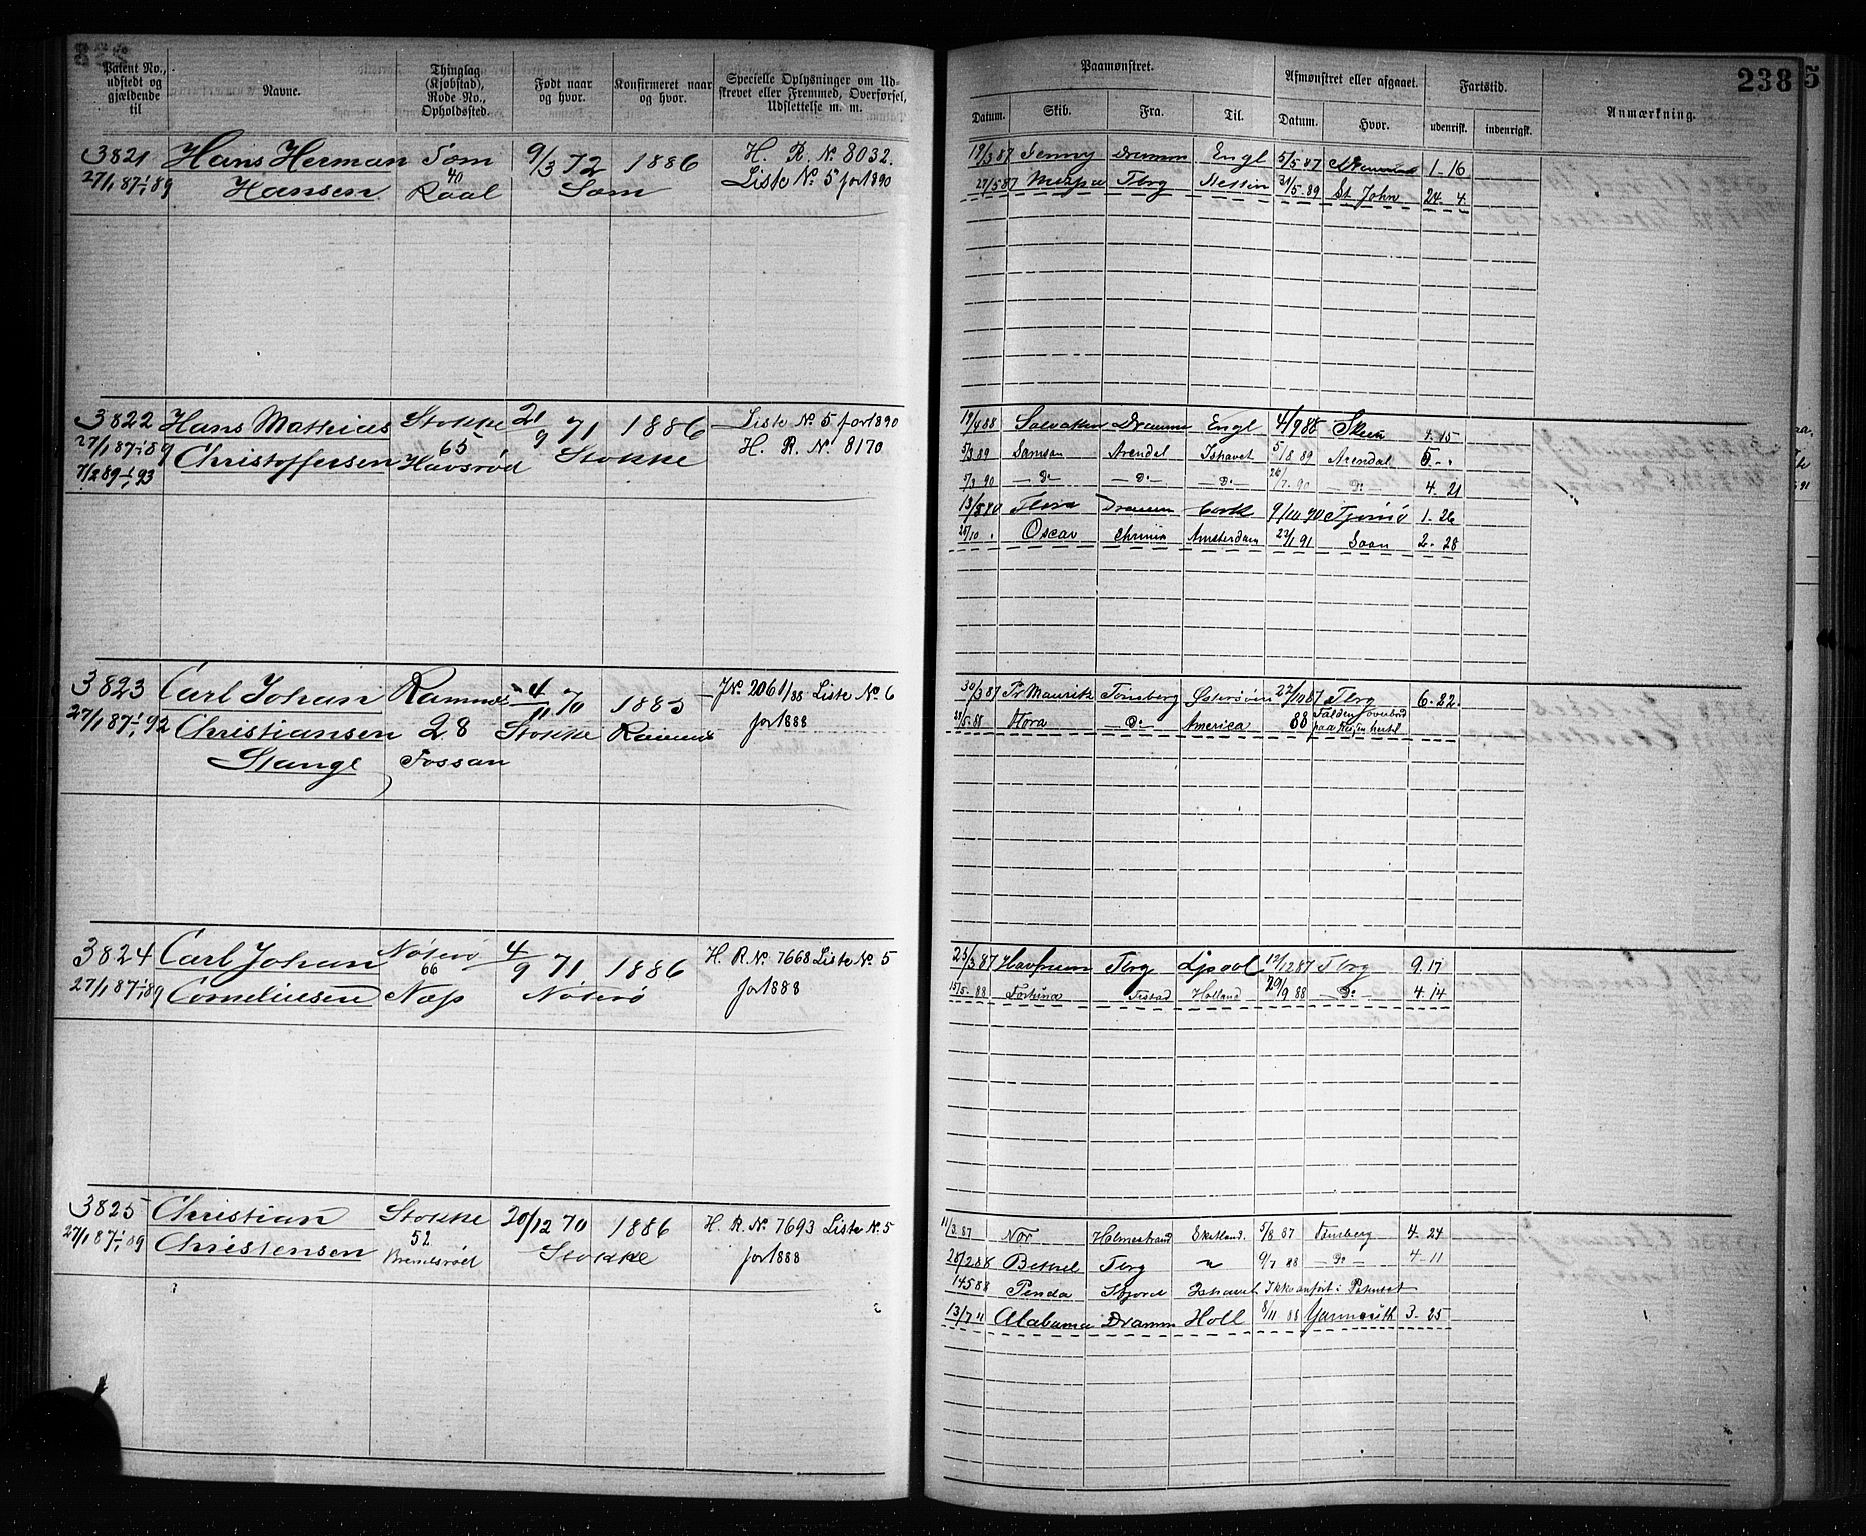 Patent No., udstedt og gjældende til
Navne.
Thinglag (Kjøbstad), Rode No., Opholdssted.
Født naar og hvor.
Konfirmeret naar og hvor.
Specielle Oplysninger om Udskrevet eller Fremmed, Overførsel, Udslettelse m. m.
Paamønstret.
Afmønstret eller afgaaet.
Fartstid.
Anmærkning.
238
5
Datum. Skib. Fra. Til. Datum. Hvor. udenrigsk. indenrigsk.
3821 Hans Herman Sem 9/3 72 1886 H. R. No 8032.
27/1 87-1/1 89 Hansen 40 Raal Sem Liste No 5 for 1890
19/3 87 Jenny Dramm Engl 5/5 87 1-16
27/5 87 Tbrg 31/5-89 St. John 24-4
3822 Hans Mathias Stokke 21/9 71 1886 Liste No 5 for 1890
27/1 87-1/1 89 Christoffersen 65 Havsrød Stokke H. R. No 8170
7/2 89-1/1 93
19/4 88 Dramm Engl 4/9 88 Skien 4-15
5/3 89 Samson Arendal Ishavet 5/8 89 Arendal 5-"
5/3 90 -Do- -Do- -Do- 26/7 90 -Do- 4-21
13/8 90 Flora Dramm Cork 9/10 90 Tjømø 1-26
25/10 " Oscar Chrnia Amsterdam 22/1 91 Soon 2-28
3823 Carl Johan Ramnes 4/11 70 1885 JNo 2061/88 Liste No 6
27/1 87-1/1 92 Christiansen 28 Stokke Ramnes for 1888
Stange Fossan
30/3 87 Pr Maurits Tønsberg Østersøen 22/10 87 Tbrg 6-22
Nora -Do- America 88 Falden overbord
paa Reisen hertil
3824 Carl Johan Nøterø 4/9 71 1886 H. R. No 7668 Liste No 5
27/1 87-1/1 89 Corneliusen 66 Næs Nøterø for 1888
23/3 87 Havfruen Tbrg Lpool 12/12 87 Tbrg 9.17
15/5-88 Fortuna Holland 29/9 88 -Do- 4.14
3825 Christian Stokke 20/12 70 1886 H. R. No 7693 Liste No 5
27/1 87-1/1 89 Christensen 52 Bremesrød Stokke for 1888
11/3 87 Nor Holmestrand Sketland 5/8 87 Tønsberg 4-24
28/2 88 Bethel Tbrg " 9/7 88 -Do- 4-11
14 5 88 Penda Ishavet Ikke anført i Patentet
13/7 " Alabama Dramm Holl 8/11 88 Yarmouth 3-25